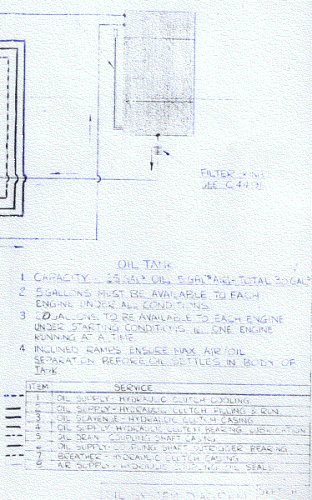 FILTER
SEE
OIL TANK
1 CAPACITY:- 25 GALS OIL 5 GALS AIR - TOTAL 30 GALS
2 5 GALLONS MUST BE AVAILABLE TO EACH
ENGINE UNDER ALL CONDITIONS
3 20 GALLONS TO BE AVAILABLE TO EACH ENGINE
UNDER STARTING CONDITIONS IE ONE ENGINE
RUNNING AT A TIME.
4 INCLINED RAMPS ENSURE MAX AIR/OIL
SEPARATION BEFORE OIL SETTLES IN BODY OF
TANK
ITEM SERVICE
1 OIL SUPPLY - HYDRAULIC CLUTCH COOLING
2 OIL SUPPLY - HYDRAULIC CLUTCH FILLING & RUN.
3 OIL SCAVENGE - HYDRAULIC CLUTCH CASING
4 OIL SUPPLY - HYDRAULIC CLUTCH BEARING LUBRICATION
5 OIL DRAIN - COUPLING SHAFT CASING
6 OIL SUPPLY - COUPLING SHAFT OUTRIDER BEARING
7 BREATHER - HYDRAULIC CLUTCH CASING
8 AIR SUPPLY - HYDRAULIC OIL SEALS